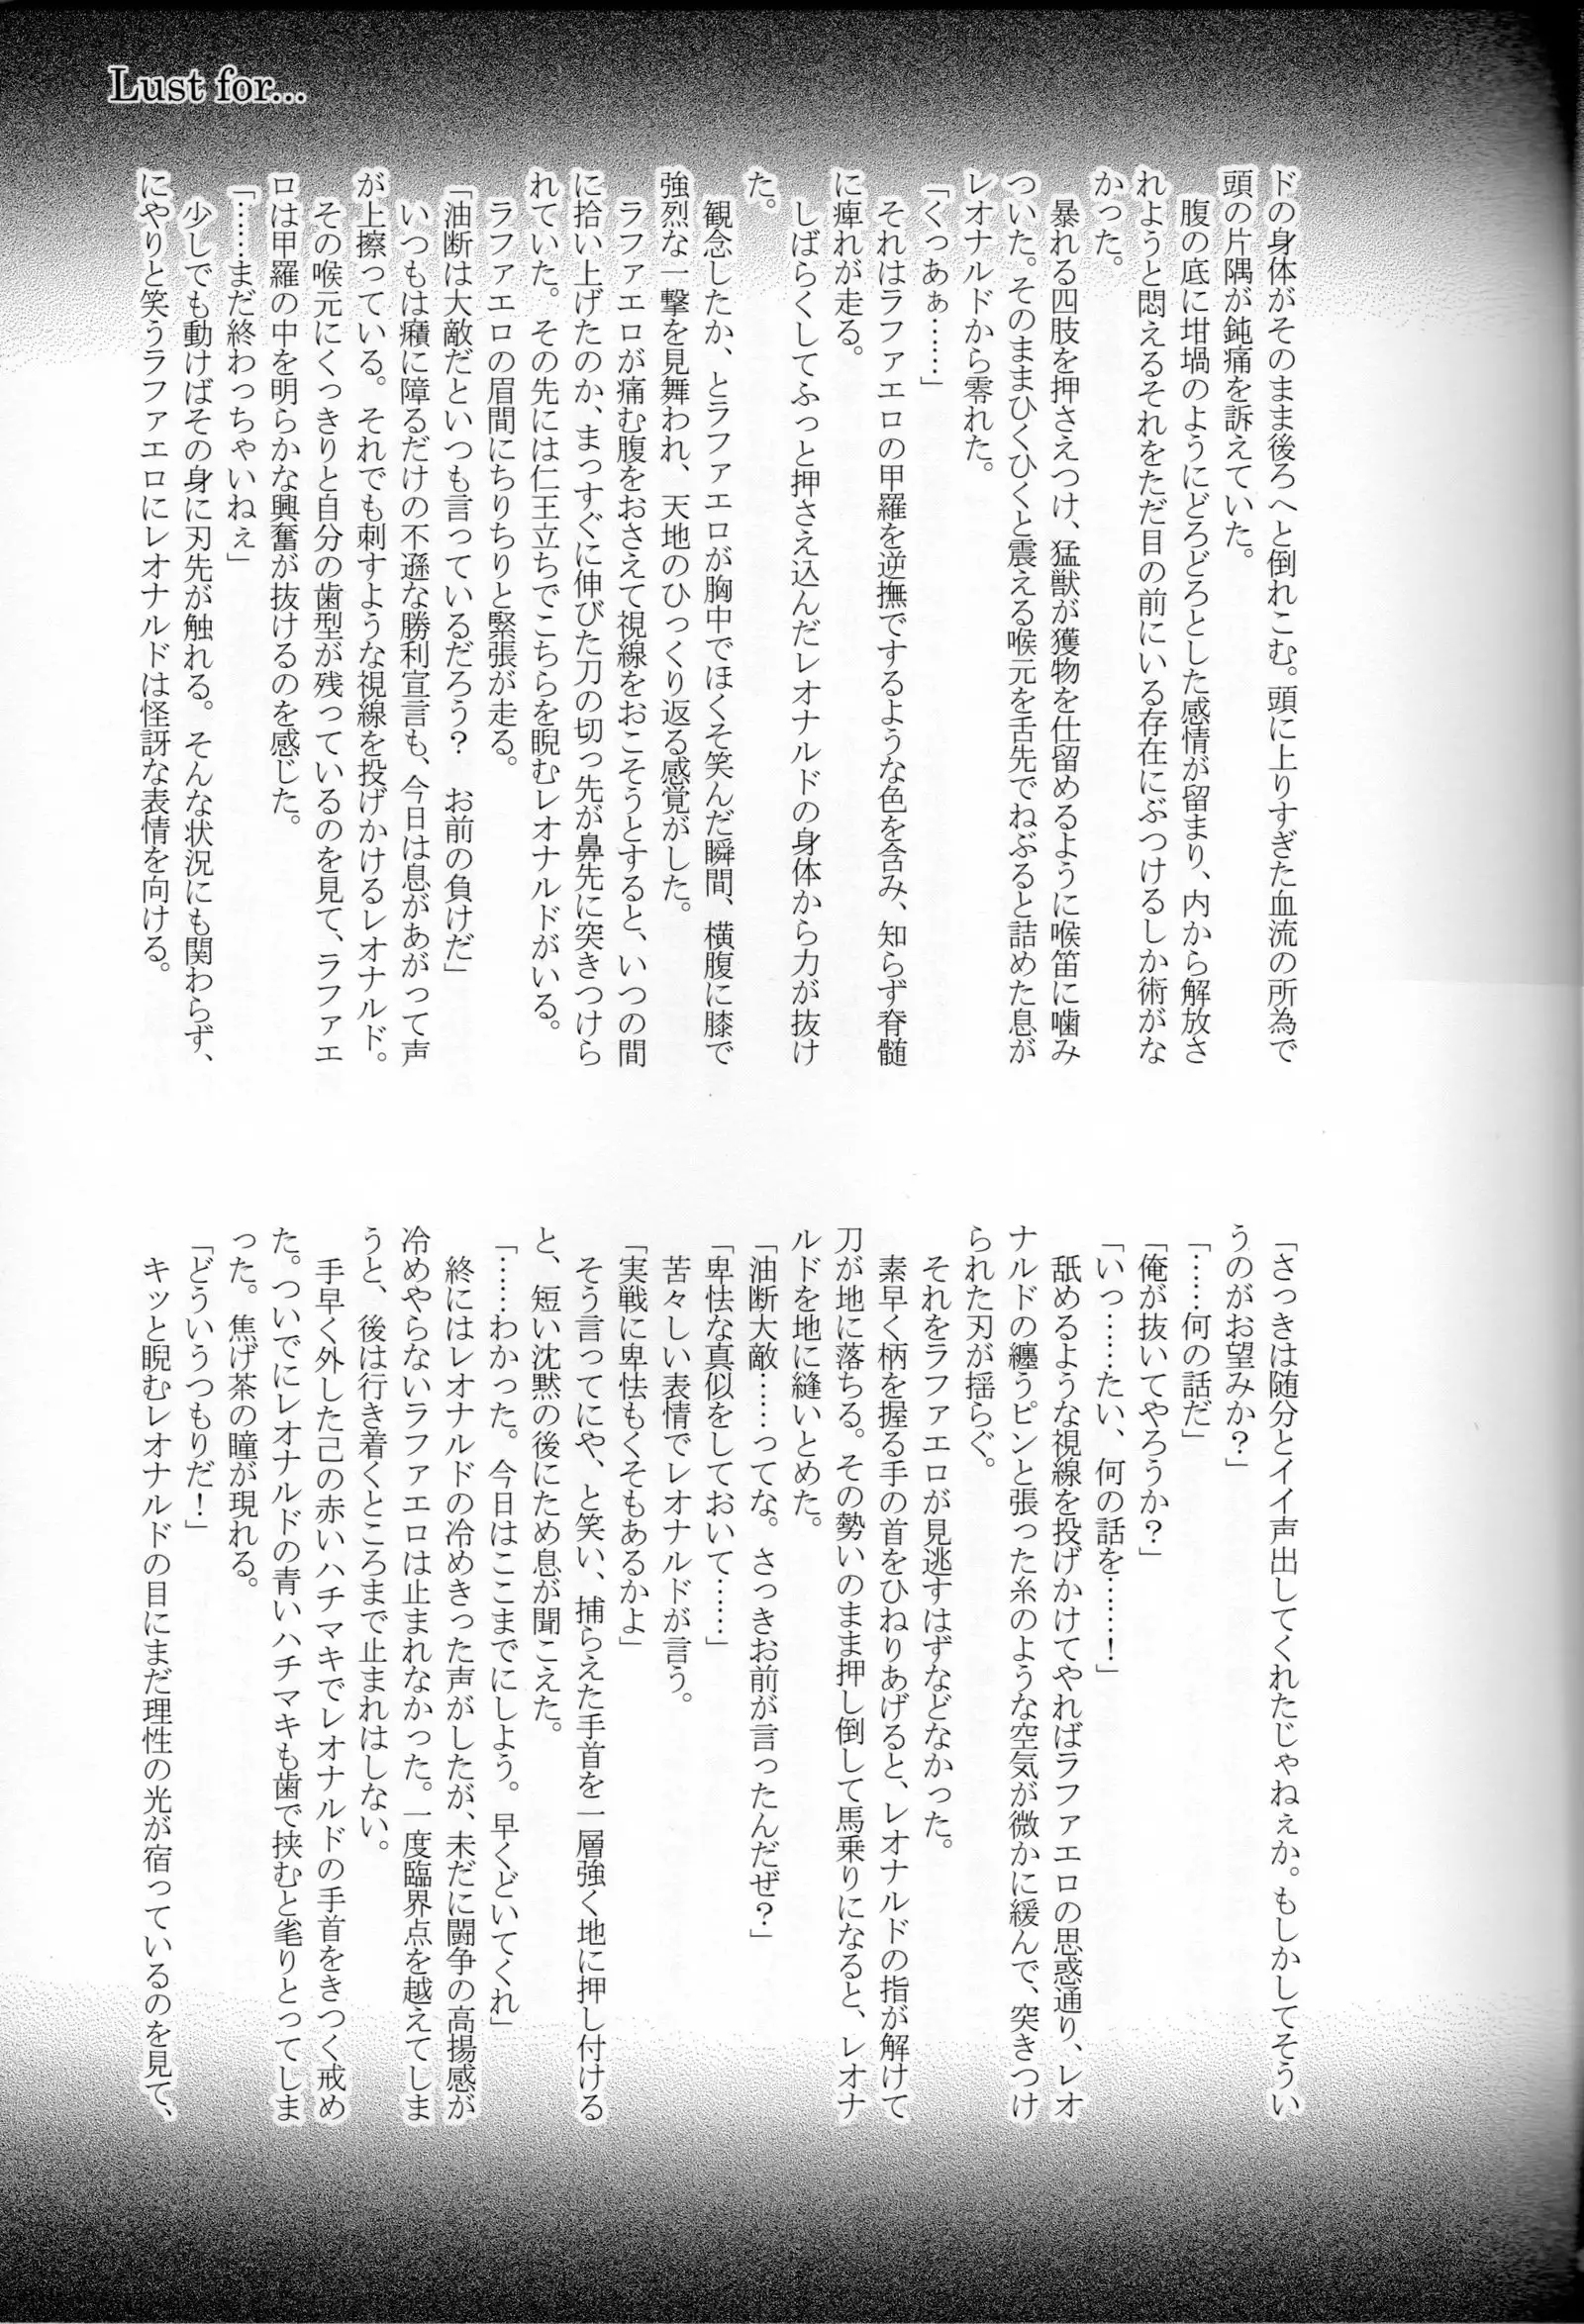 Lust for...
ドの身体がそのまま後ろへと倒れこむ。頭に上りすぎた血流の所為で
頭の片隅が鈍痛を訴えていた。
腹の底に坩堝のようにどろどろとした感情が留まり、内から解放さ
れようと悶えるそれをただ目の前にいる存在にぶつけるしか術がな
かった。
暴れる四肢を押さえつけ、猛獣が獲物を仕留めるように喉笛に噛み
ついた。そのままひくひくと震える喉元を舌先でねぶると詰めた息が
レオナルドから零れた。
「くっあぁ……」
それはラファエロの甲羅を逆撫でするような色を含み、知らず脊髄
に痺れが走る。
しばらくしてふっと押さえ込んだレオナルドの身体から力が抜け
た。
観念したか、とラファエロが胸中でほくそ笑んだ瞬間、横腹に膝で
強烈な一撃を見舞われ、天地のひっくり返る感覚がした。
ラファエロが痛む腹をおさえて視線をおこそうとすると、いつの間
に拾い上げたのか、まっすぐに伸びた刀の切っ先が鼻先に突きつけら
れていた。その先には仁王立ちでこちらを睨むレオナルドがいる。
ラファエロの眉間にちりちりと緊張が走る。
「油断は大敵だといつも言っているだろう？　お前の負けだ」
いつもは癪に障るだけの不遜な勝利宣言も、今日は息があがって声
が上擦っている。それでも刺すような視線を投げかけるレオナルド。
その喉元にくっきりと自分の歯型が残っているのを見て、ラファエ
ロは甲羅の中を明らかな興奮が抜けるのを感じた。
「……まだ終わっちゃいねぇ」
少しでも動けばその身に刃先が触れる。そんな状況にも関わらず、
にやりと笑うラファエロにレオナルドは怪訝な表情を向ける。
「さっきは随分とイイ声出してくれたじゃねぇか。もしかしてそうい
うのがお望みか？」
「……何の話だ」
「俺が抜いてやろうか？」
「いっ……たい、何の話を……！」
舐めるような視線を投げかけてやればラファエロの思惑通り、レオ
ナルドの纏うピンと張った糸のような空気が微かに緩んで、突きつけ
られた刃が揺らぐ。
それをラファエロが見逃すはずなどなかった。
素早く柄を握る手の首をひねりあげると、レオナルドの指が解けて
刀が地に落ちる。その勢いのまま押し倒して馬乗りになると、レオナ
ルドを地に縫いとめた。
「油断大敵……ってな。さっきお前が言ったんだぜ？」
「卑怯な真似をしておいて……」
苦々しい表情でレオナルドが言う。
「実戦に卑怯もくそもあるかよ」
そう言ってにや、と笑い、捕らえた手首を一層強く地に押し付ける
と、短い沈黙の後にため息が聞こえた。
「……わかった。今日はここまでにしよう。早くどいてくれ」
終にはレオナルドの冷めきった声がしたが、未だに闘争の高揚感が
冷めやらないラファエロは止まれなかった。一度臨界点を越えてしま
うと、後は行き着くところまで止まれはしない。
手早く外した己の赤いハチマキでレオナルドの手首をきつく戒め
た。ついでにレオナルドの青いハチマキも歯で挟むと毟りとってしま
った。焦げ茶の瞳が現れる。
「どういうつもりだ！」
キッと睨むレオナルドの目にまだ理性の光が宿っているのを見て、